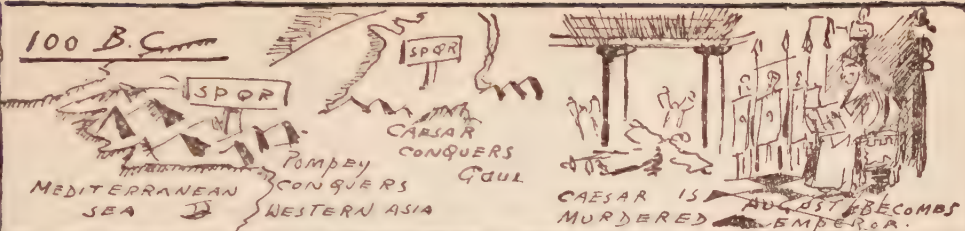 100 B.C.
SPQR
MEDITERRANEAN
SEA
Pompey
CONQUERS
WESTERN ASIA
SPQR
CAESAR
CONQUERS
GAUL
CAESAR IS
MURDERED
BECOMES
EMPEROR.